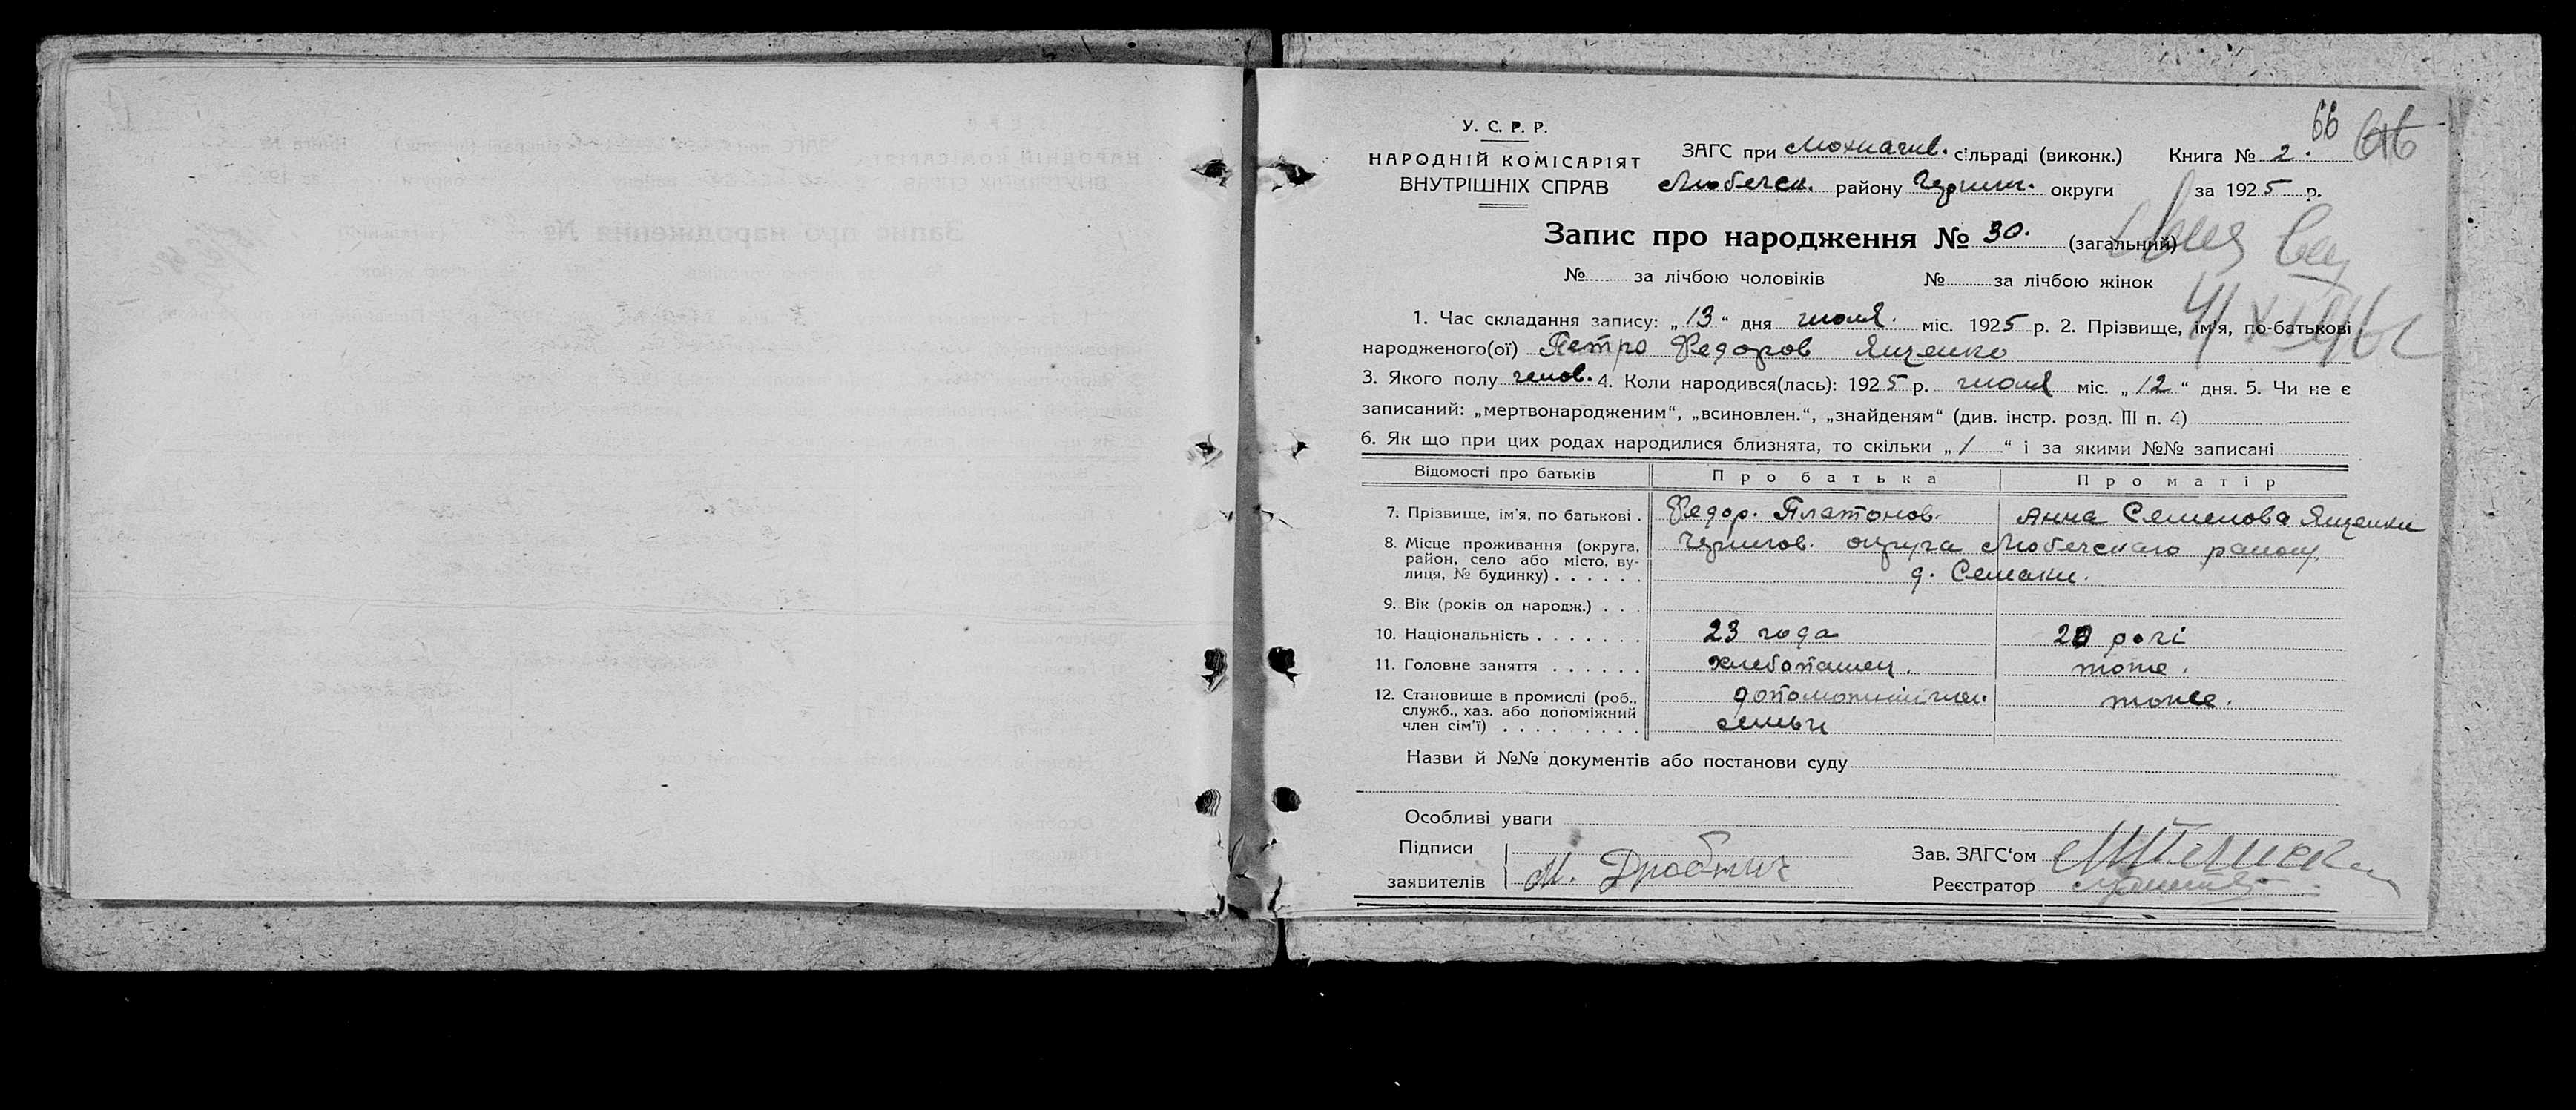 66
У. С. Р. Р.
НАРОДНІЙ КОМІСАРІЯТ
ВНУТРІШНІХ СПРАВ
ЗАГС при Мохначив. сільраді (виконк.) Книга № 2.
Любечск. району Черниг. округи за 1925 р.
Запис про народження № 30. (загальний)
№ за лічбою чоловіків № за лічбою жінок
1. Час складання запису: „13“ дня июля. міс. 1925 р. 2. Прізвище, ім'я, по-батькові
народженого(ої) Петро Федоров Ященко
3. Якого полу челов. 4. Коли народився(лась): 1925 р. июля міс. „12“ дня. 5. Чи не є
записаний: „мертвонародженим“, „всиновлен.“, „знайденям“ (див. інстр. розд. III п. 4)
6. Як що при цих родах народилися близнята, то скільки „/“ і за якими №№ записані
Відомості про батьків Про батька Про матір
7. Прізвище, ім'я, по батькові . Федор. Платонов. Анна Семенова Ященки
8. Місце проживання (округа, район, село або місто, вулиця, № будинку) . . . . . . Чернигов. округа Любечскаго району,
д. Семаки.
9. Вік (років од народж.) . . .
10. Національність . . . . . . . 23 года 20 рокі
11. Головне заняття . . . . . . хлебопашец. тоже.
12. Становище в промислі (роб., служб., хаз. або допоміжний член сім'ї) . . . . . . . . . допоможний член. тоже.
семьи
Назви й №№ документів або постанови суду
Особливі уваги
Підписи
заявителів М. Дробнич
Зав. ЗАГС'ом
Реєстратор